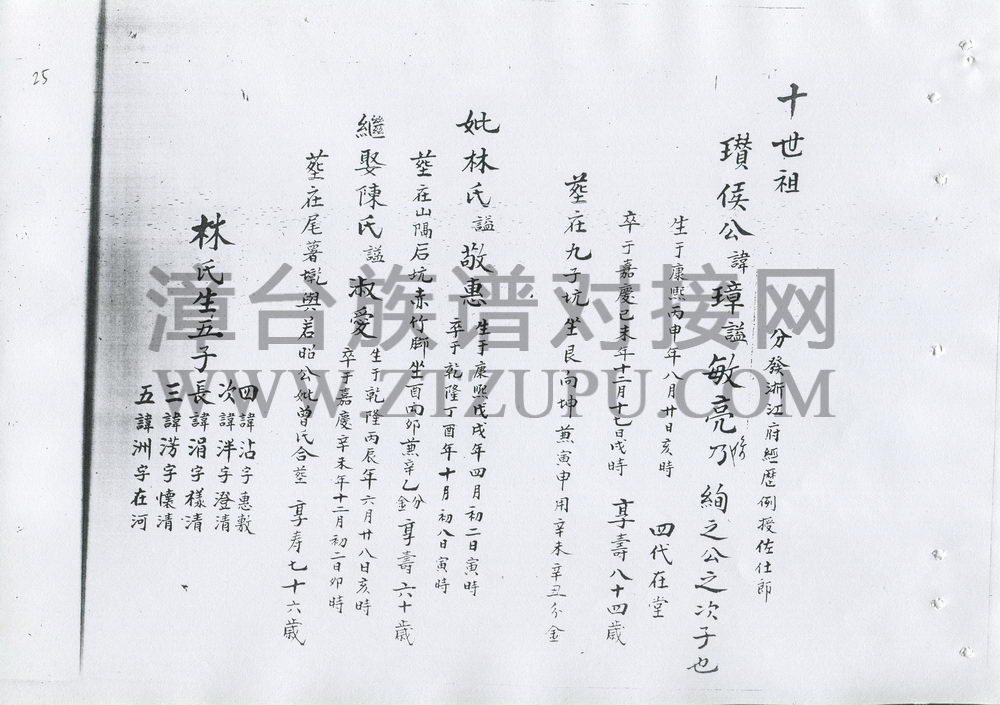 十世祖
分發浙江府經歷例授佐仕郎
瓚侯公諱璋謚敏亮乃絢之公之次子也
生于康熙丙申年八月廿日亥時 四代在堂
卒于嘉慶己未年十二月十七日戌時 享壽八十四歲
塟在九子坑坐艮向坤兼寅申用辛未辛丑分金
妣林氏謚敬惠 生于康熙戊戌年四月初二日寅時
卒于乾隆丁酉年十月初八日寅時
塟在山隔后坑赤竹腳坐酉丙卯兼辛乙分金 享壽六十歲
繼娶陳氏謚淑愛 生于乾隆丙辰年六月廿八日亥時
卒于嘉慶辛未年十二月初二日卯時
塟在尾薯墘與若昭公妣曾氏合塟 享寿七十六歲
林氏生五子
長諱涓字樣清
次諱泮字澄清
三諱淓字懷清
四諱沾字惠敷
五諱洲字在河
25
漳台族谱对接网
WWW.ZIZUPU.COM